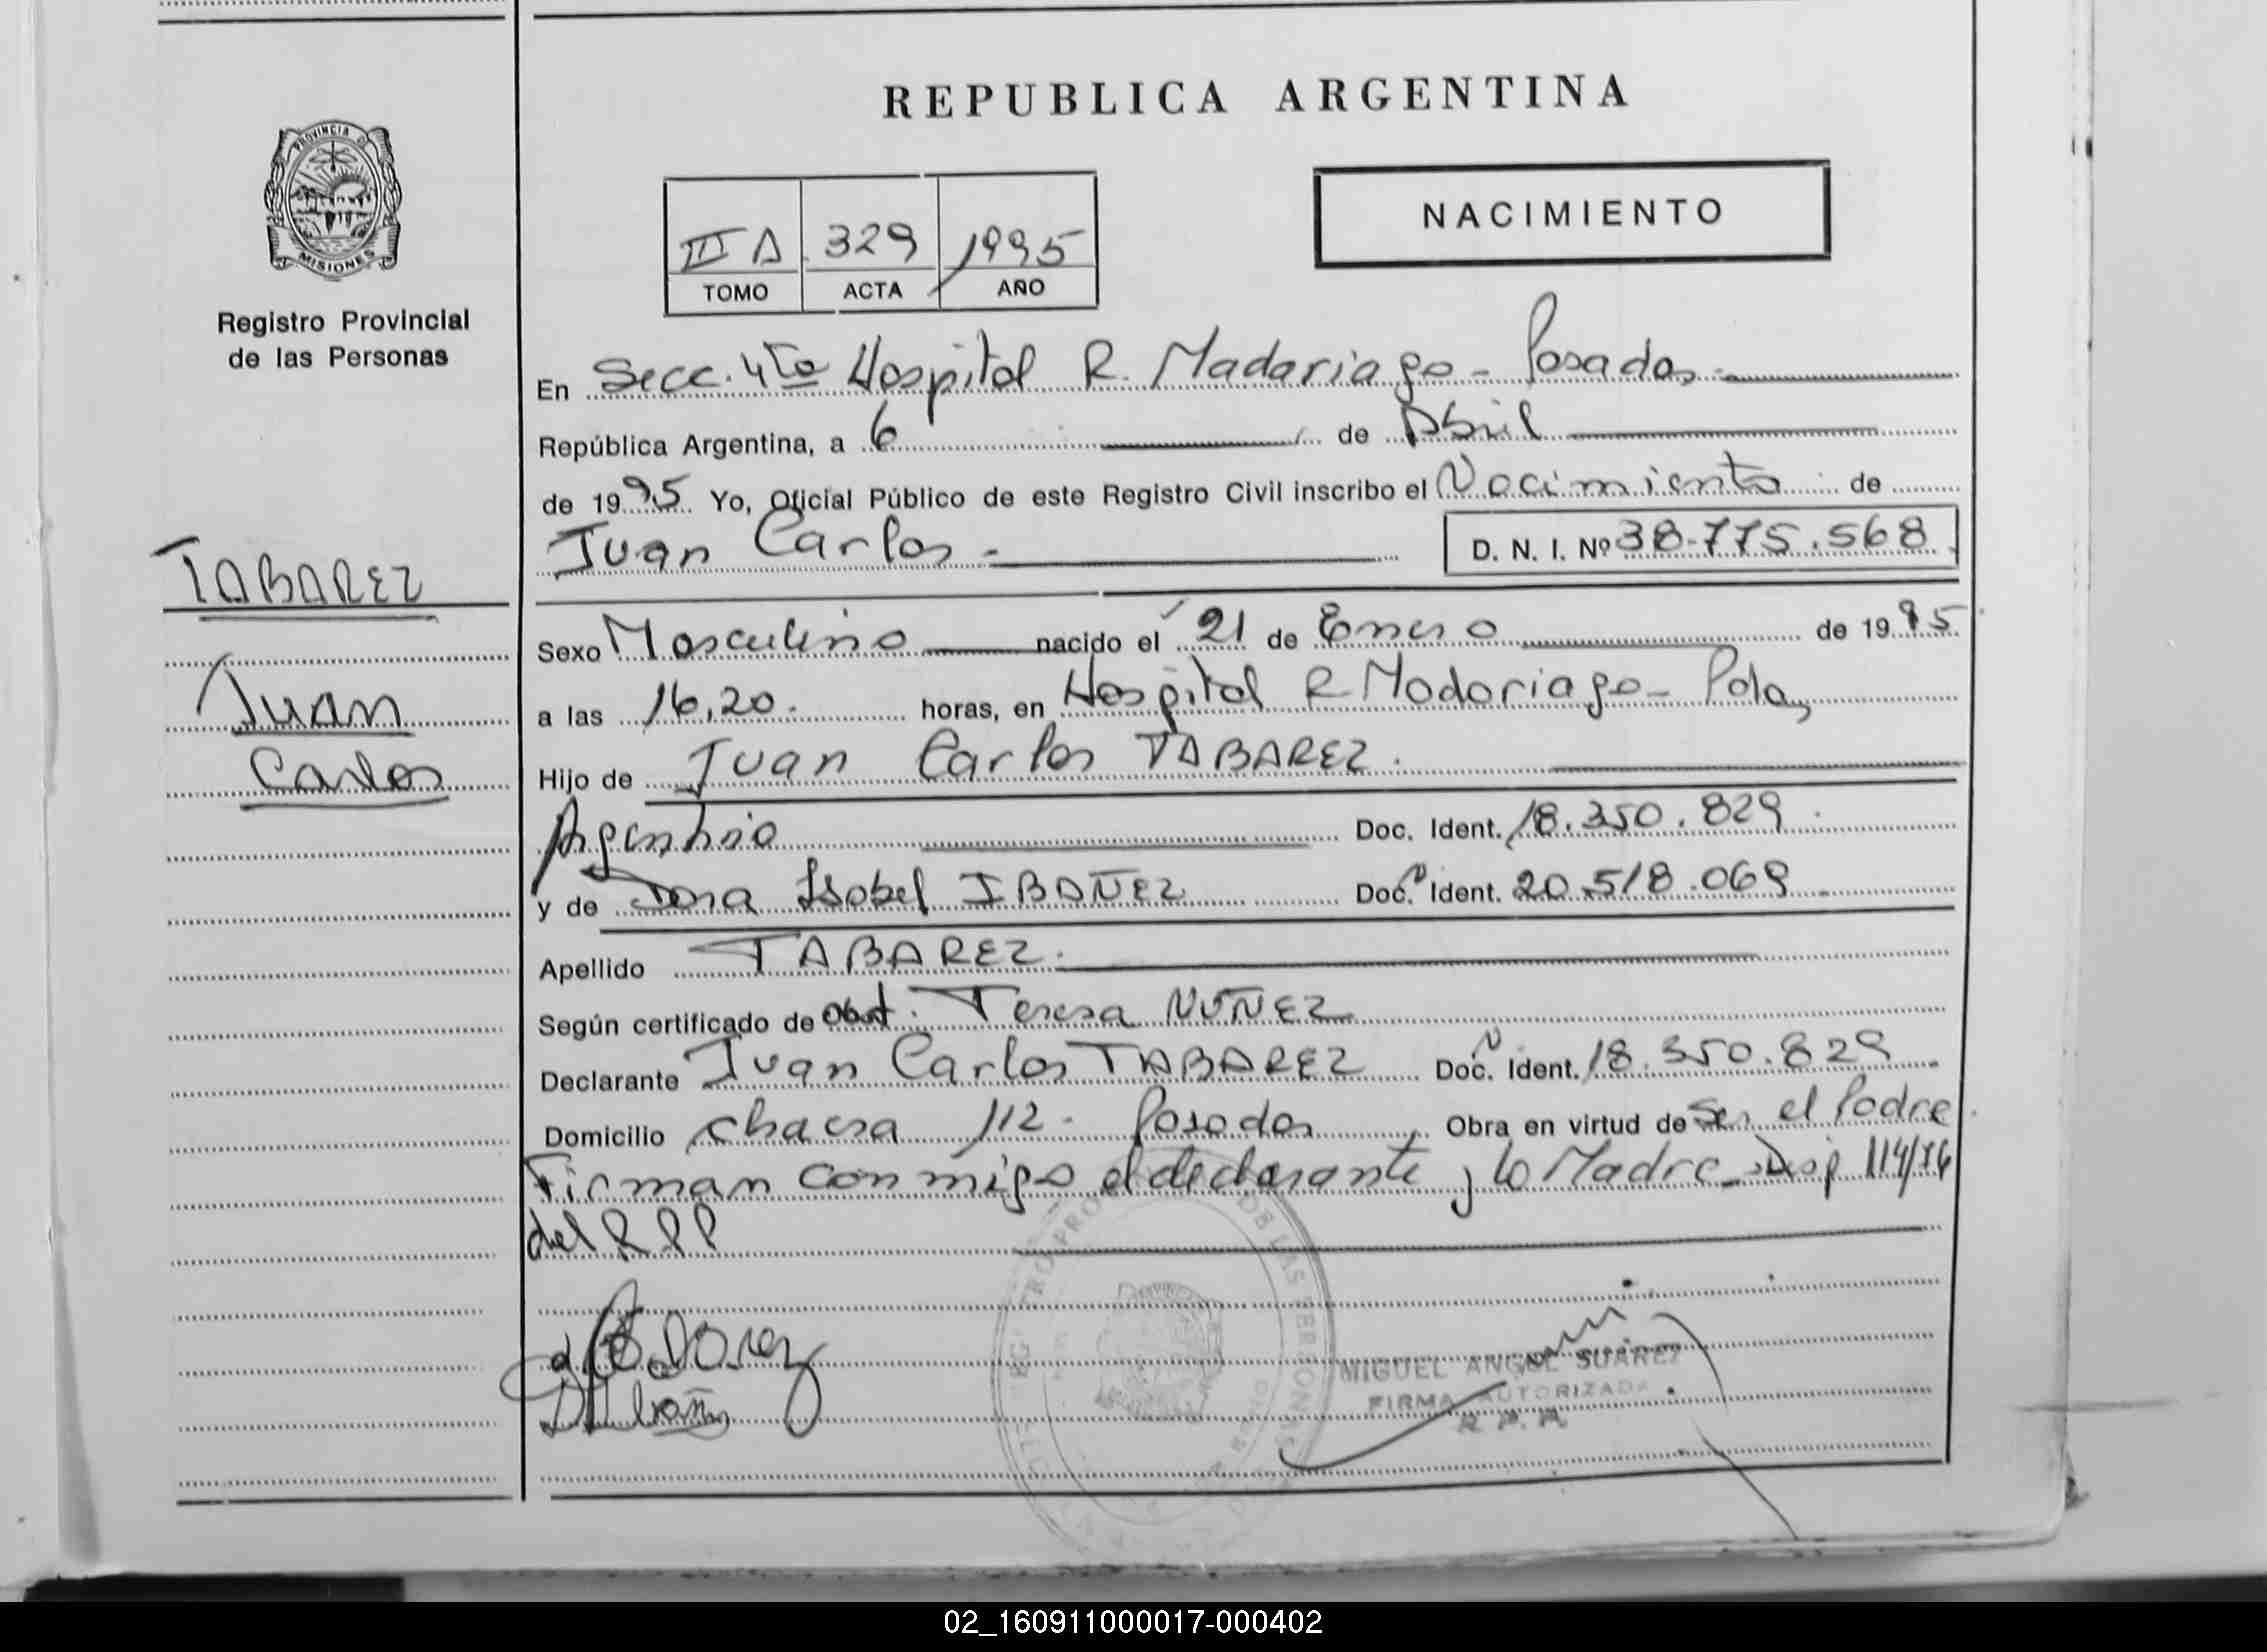 REPUBLICA ARGENTINA
PROVINCIA DE
MISIONES
Registro Provincial
de las Personas
III A 329 1995
TOMO ACTA AÑO
NACIMIENTO
En Secc. 4ta Hospital R. Madariaga - Posadas -
República Argentina, a 6 de Abril
de 1995 Yo, Oficial Público de este Registro Civil inscribo el Nacimiento de
Juan Carlos - D. N. I. Nº 38.775.568
TABAREZ
Juan
Carlos
Sexo Masculino nacido el 21 de Enero de 1995
a las 16,20. horas, en Hospital R Madariaga - Pdas
Hijo de Juan Carlos TABAREZ.
Argentino Doc. Ident. 18.350.829
y de Isabel IBAÑEZ Doc. Ident. 20.518.069
Apellido TABAREZ.
Según certificado de Obst. Teresa NUÑEZ
Declarante Juan Carlos TABAREZ Doc. Ident. 18.350.829
Domicilio chacra 112 - Posadas Obra en virtud de ser el Padre
Firman conmigo el declarante y la Madre - Disp 114/76
del RPP
MIGUEL ANGEL SUAREZ
FIRMA AUTORIZADA
02_160911000017-000402